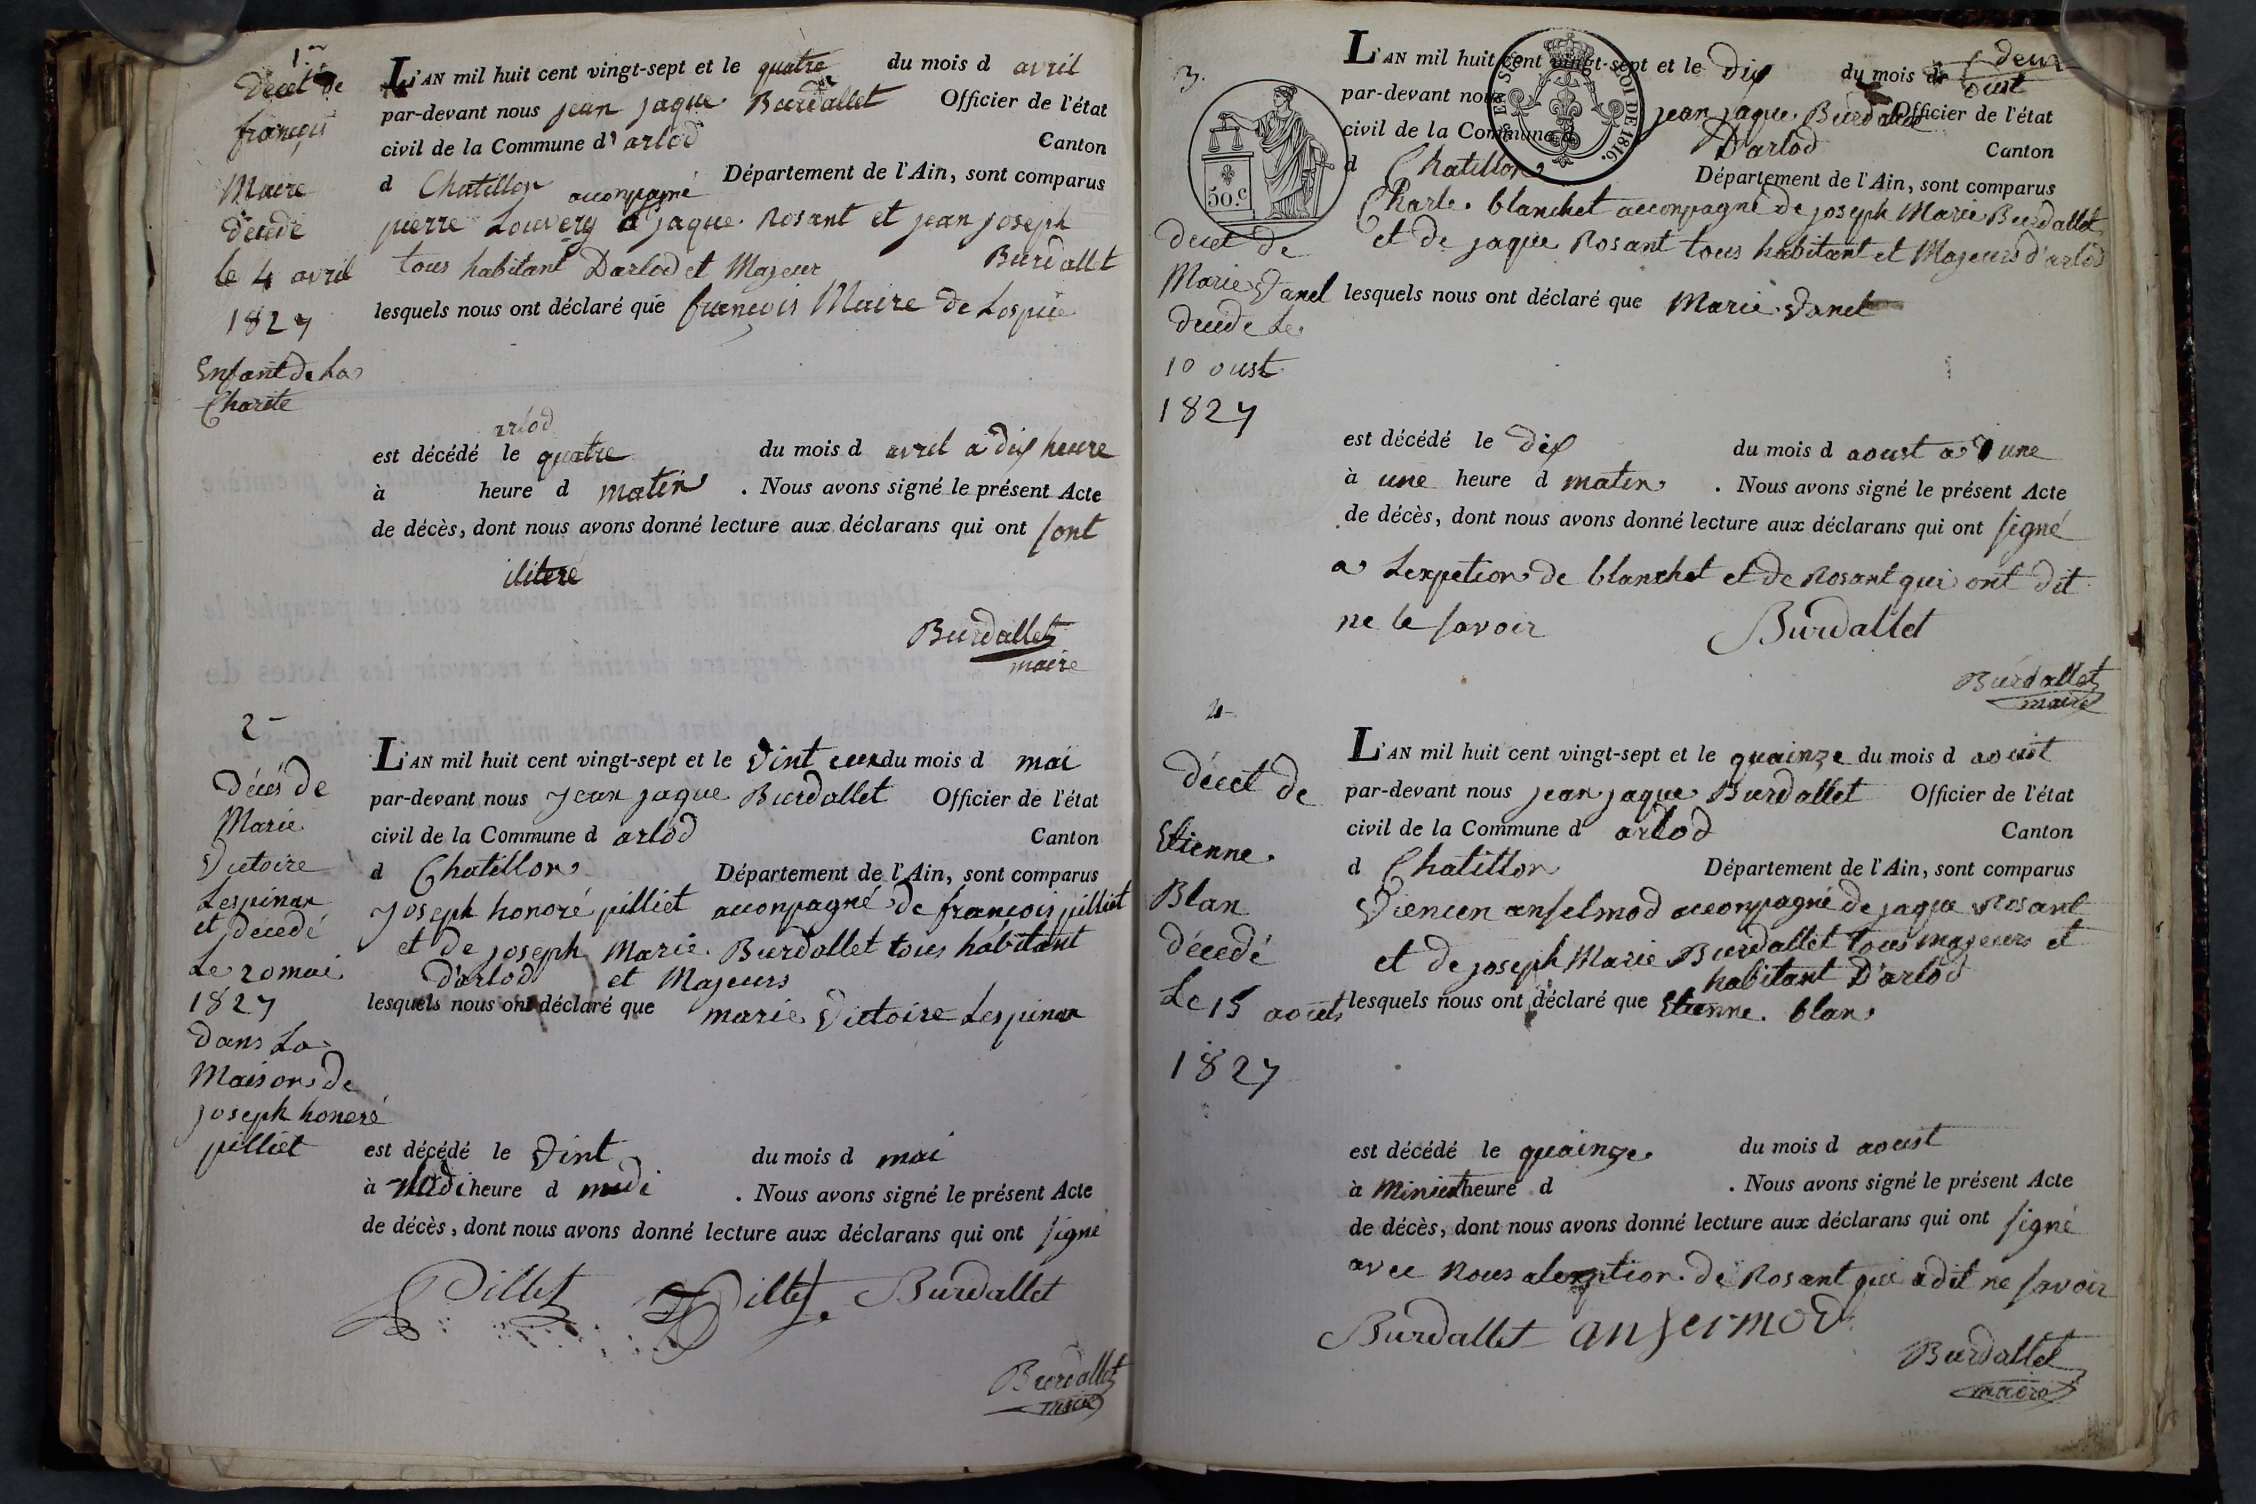 1er
Décet de
françois
Maire
décédé
le 4 avril
1827
Enfant de La
Charité
L'AN mil huit cent vingt-sept et le quatre du mois d avril
par-devant nous jean jaque Burdallet Officier de l'état
civil de la Commune d'arlod Canton
d Chatillon Département de l'Ain, sont comparus
accompagné
pierre Louvery a jaque Rosant et jean joseph
Burdallt
tous habitant Darlod et Majeur
lesquels nous ont déclaré que françois Maire de Lospice
arlod
est décédé le quatre du mois d avril a dix heure
à heure d matin . Nous avons signé le présent Acte
de décès, dont nous avons donné lecture aux déclarans qui ont sont
ilitere
Burdallet
maire
2
Décés de
Marie
Victoire
Lespinan
et décedé
Le 20 mai
1827
dans La
Maison de
joseph honoré
pilliet
L'AN mil huit cent vingt-sept et le vint du mois d mai
par-devant nous Jean jaque Burdallet Officier de l'état
civil de la Commune d arlod Canton
d Chatillon Département de l'Ain, sont comparus
Joseph honoré pilliet acconpagné de françois pilliet
et de joseph Marie Burdallet tous habitant
d'arlod et Majeurs
lesquels nous ont déclaré que marie Victoire Lespinan
est décédé le vint du mois d mai
à heure d midi . Nous avons signé le présent Acte
de décès, dont nous avons donné lecture aux déclarans qui ont signé
Pillet Pillet Burdallet
Burdallet
maire
3.
50.c
LOI DE 1816.
decet de
Marie Vanel
decede Le
10 oust
1827
L'AN mil huit cent vingt-sept et le dix du mois d oust
par-devant nous jean jaque Burdallet Officier de l'état
civil de la Commune d Darlod Canton
d Chatillon Département de l'Ain, sont comparus
Charle blanchet acconpagné de joseph Marie Burdallet
et de jaque Rosant tous habitant et Majeurs d'arlod
lesquels nous ont déclaré que Marie Vanel
est décédé le dix du mois d aoust a une
à une heure d matin . Nous avons signé le présent Acte
de décès, dont nous avons donné lecture aux déclarans qui ont signé
a Lexpetion de blanchet et de Rosant qui ont dit
ne le savoir Burdallet
Burdallet
maire
4
décet de
Etienne
Blan
décedé
Le 15 aoust
1827
L'AN mil huit cent vingt-sept et le quainze du mois d aoust
par-devant nous jean jaque Burdallet Officier de l'état
civil de la Commune d arlod Canton
d Chatillon Département de l'Ain, sont comparus
anselmod acconpagné de jaque Rosant
et de joseph Marie Burdallet tous majeurs et
habitant D'arlod
lesquels nous ont déclaré que Etienne blan
est décédé le quainze du mois d aoust
à Minieut heure d . Nous avons signé le présent Acte
de décès, dont nous avons donné lecture aux déclarans qui ont signé
avec nous de Rosant qui a dit ne savoir
Burdallet ansermod
Burdallet
maire